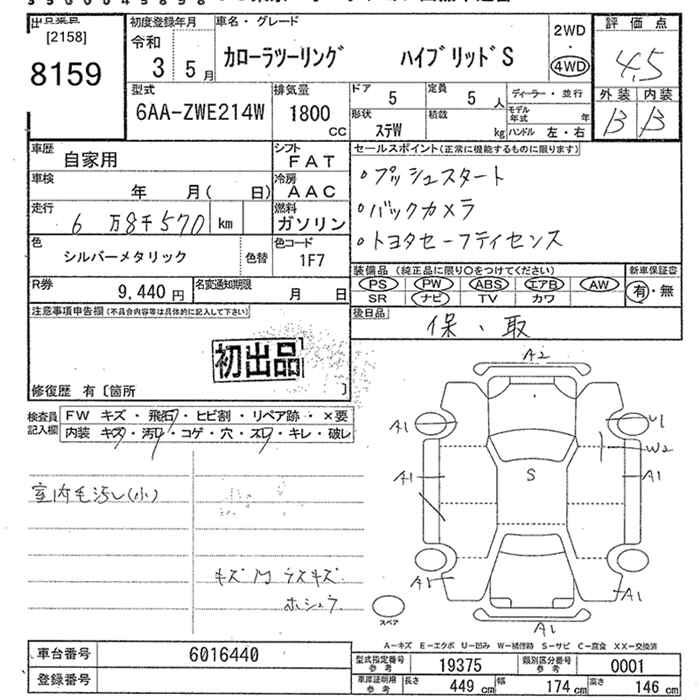 [2158]
8159
初度登録年月
令和
3 5月
車名・グレード
カローラツーリング ハイブリッドS
2WD
・
4WD
評価点
4.5
外装 内装
B B
型式
6AA-ZWE214W
排気量
1800
CC
ドア 5
定員 5人
形状 ステW
積載 kg
ディーラー・並行
モデル年式 年
ハンドル 左・右
車歴 自家用
シフト FAT
車検 年 月( 日)
冷房 AAC
走行 6万8千570 km
燃料 ガソリン
色 シルバーメタリック
色替
色コード 1F7
R券 9,440円
名変通知期限 月 日
セールスポイント(正常に機能するものに限ります)
○プッシュスタート
○バックカメラ
○トヨタセーフティセンス
装備品 (純正品に限り○をつけてください)
PS PW ABS エアB AW
SR ナビ TV カワ
新車保証書
有・無
後日品
保、取
注意事項申告欄(不具合内容等は具体的に記入して下さい)
初出品
修復歴 有〔箇所 〕
検査員記入欄
FW キズ・飛石・ヒビ割・リペア跡・×要
内装 キズ・汚れ・コゲ・穴・スレ・キレ・破レ
室内毛汚し(小)
キズ
ラスキズ
ホシュウ
A2
A1
U1
W2
A1
A1
S
A1
A1
A1
スペア
A-キズ E-エクボ U-凹み W-補修跡 S-サビ C-腐食 XX-交換済
車台番号 6016440
登録番号
型式指定番号 参考 19375
類別区分番号 参考 0001
車庫証明用 参考 長さ 449cm 幅 174cm 高さ 146cm